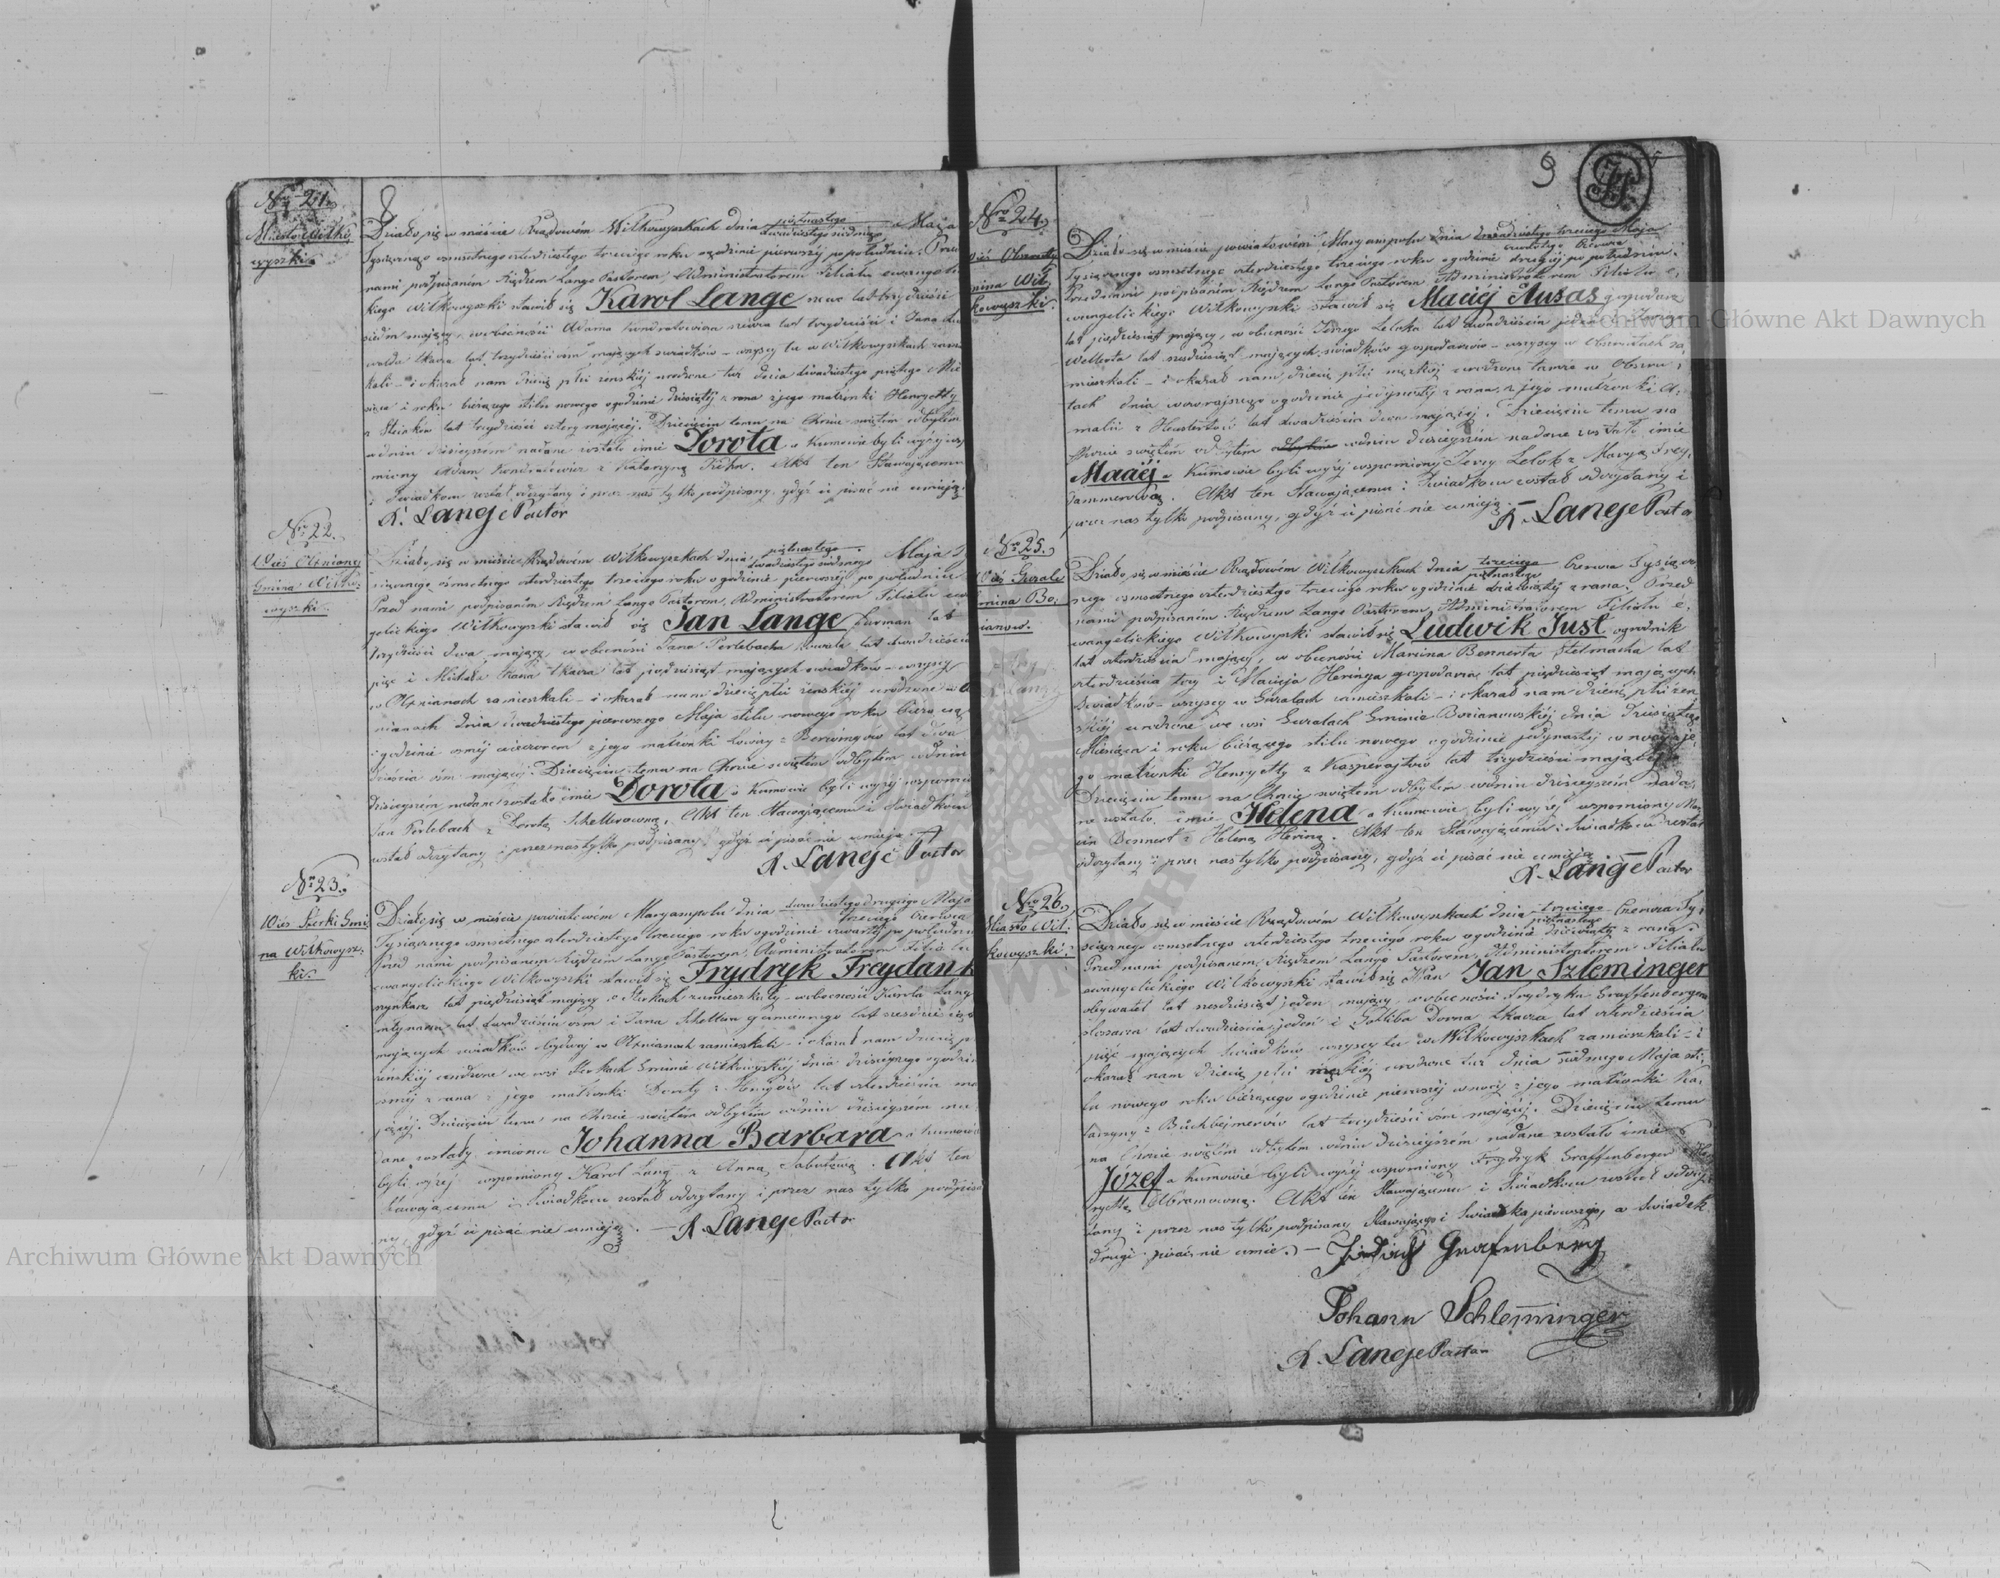 8
Nro 21.
Miasto Wiłko
wyszki.
Działo się w mieście Rządowém Wiłkowyszkach dnia piętnastego / dwudziestego siódmego Maja
tysiącznego osmsetnego czterdziestego trzeciego roku o godzinie pierwszéj po południu. Przed
nami podpisaném Księdzem Lange Pastorem, Administratorem Filiału ewangelic
kiego Wiłkowyszki stawił się Karol Lange szewc lat trzydzieści
siedm mający, w obecności Adama Kondratowicza szewca lat trzydzieści i Jana
tkacza lat trzydzieści ośm mających świadków – wszyscy tu w Wiłkowyszkach zamie
szkali – i okazał nam dziecię płci żeńskiéj urodzone tuż dnia dwudziestego piątego Mie
siąca i roku bieżącego stilu nowego o godzinie dziesiątéj z rana z jego małżonki Henryetty
z lat trzydzieści cztery mającéj. Dziecięciu temu na Chrzcie świętém odbytém
w dniu dzisiejszém nadane zostało imie Dorota a Kumowie byli wyżéj wspo
miony Adam Kondratowicz z Katarzyną Kühn. Akt ten Stawającemu
i Świadkom został odczytany i przez nas tylko podpisany, gdyż ci pisać nie umieją.
R. Lange Pastor
Nro 22.
Wieś Olxniany
Gmina Wiłko
wyszki.
Działo się w mieście Rządowém Wiłkowyszkach dnia piętnastego / dwudziestego siódmego Maja Ty
siącznego osmsetnego czterdziestego trzeciego roku o godzinie pierwszéj po południu
Przed nami podpisaném Księdzem Lange Pastorem, Administratorem Filiału ewan
gelickiego Wiłkowyszki stawił się Jan Lange furman lat
trzydzieści dwa mający, w obecności Jana Perlebacha kowala lat dwadzieścia
pięć i Michała tkacza lat pięćdziesiąt mających świadków – wszyscy
w Olxnianach zamieszkali – i okazał nam dziecię płci żeńskiéj urodzone w Olx
nianach dnia dwudziestego pierwszego Maja stilu nowego roku bieżącego
o godzinie ósméj wieczorem z jego małżonki Lowizy z lat dwa
dzieścia ośm mającéj. Dziecięciu temu na Chrzcie świętém odbytém w dniu
dzisiejszém nadane zostało imie Dorota a Kumowie byli wyżéj wspomnion
Jan Perlebach z Dorotą Schellerówną. Akt ten Stawającemu i Świadkom
został odczytany i przez nas tylko podpisany, gdyż ci pisać nie umieją.
R. Lange Pastor
Nro 23.
Wieś Szeki Gmi
na Wiłkowysz
ki.
Działo się w mieście powiatowém Maryampolu dnia dwudziestego drugiego Maja / trzeciego Czerwca
Tysiącznego osmsetnego czterdziestego trzeciego roku o godzinie czwartéj po południu
Przed nami podpisaném Księdzem Lange Pastorem, Administratorem Filiału
ewangelickiego Wiłkowyszki stawił się Frydryk Freydank
szynkarz lat pięćdziesiąt mający w Szekach zamieszkały, w obecności Karola Lang
młynarza lat dwadzieścia ośm i Jana Schellera lat sześćdziesiąt
mających świadków obydwoj w Olxnianach zamieszkali – i okazał nam dziecię płci
żeńskiéj urodzone we wsi Szekach Gminie Wiłkowyskiéj dnia dzisiejszego o godzinie
z rana z jego małżonki Doroty z lat czterdzieści ma
jącéj. Dziecięciu temu na Chrzcie świętém odbytém w dniu dzisiejszém na
dane zostały imiona Johanna Barbara a Kumowie
byli wyżéj wspomniony Karol Lang z Anną. Akt ten
Stawającemu i Świadkom został odczytany i przez nas tylko podpisa
ny, gdyż ci pisać nie umieją. – R. Lange Pastor
9
Nro 24.
Wieś Obszruty
Gmina Wił
kowyszki.
Działo się w mieście powiatowém Maryampolu dnia dwudziestego trzeciego Maja / czwartego Czerwca
Tysiącznego osmsetnego czterdziestego trzeciego roku o godzinie drugiéj po południu.
Przed nami podpisaném Księdzem Lange Pastorem, Administratorem Filiału e
wangelickiego Wiłkowyszki stawił się Maciéj Ausas gospodarz
lat pięćdziesiąt mający, w obecności Jerzego Leloka lat dwadzieścia
lat sześćdziesiąt mających świadków gospodarzów – wszyscy w Obszrutach za
mieszkali – i okazał nam dziecię płci męzkiéj urodzone tamże w Obszru
tach dnia wczorajszego o godzinie jedynastéj z rana, z jego małżonki A
malii z lat dwadzieścia dwa mającéj. Dziecięciu temu na
Chrzcie świętém odbytém w dniu dzisiejszém nadane zostało imie
Maciéj a Kumowie byli wyżéj wspomniony Jerzy Lelok z Maryą Frey
. Akt ten Stawającemu i Świadkom został odczytany i
przez nas tylko podpisany, gdyż ci pisać nie umieją. –
R. Lange Pastor
Nro 25.
Wieś Gurale
Gmina Bo
zianow.
Działo się w mieście Rządowém Wiłkowyszkach dnia trzeciego / piętnastego Czerwca Tysiącz
nego osmsetnego czterdziestego trzeciego roku o godzinie dziewiątéj z rana. Przed
nami podpisaném Księdzem Lange Pastorem, Administratorem Filiału e
wangelickiego Wiłkowyszki stawił się Ludwik Just ogrodnik
lat czterdzieścia mający, w obecności Marcina Bennerta stelmacha lat
czterdzieścia trzy i Macieja Heringa gospodarza lat pięćdziesiąt mających
Świadków – wszyscy w Guralach zamieszkali – i okazał nam dziecię płci żeń
skiéj urodzone we wsi Guralach Gminie Bozianowskiéj dnia dziesiątego
Miesiąca i roku bieżącego stilu nowego o godzinie jedynastéj w nocy z je
go małżonki Henryetty z Kasperajtów lat trzydzieści mającéj.
Dziecięciu temu na Chrzcie świętém odbytém w dniu dzisiejszém nada
ne zostało imie Helena a Kumowie byli wyżéj wspomniony Mar
cin Bennert z Heleną Hering. Akt ten Stawającemu i Świadkom został
odczytany i przez nas tylko podpisany, gdyż ci pisać nie umieją
R. Lange Pastor
Nro 26.
Miasto Wił
kowyszki.
Działo się w mieście Rządowém Wiłkowyszkach dnia trzeciego / piętnastego Czerwca Ty
siącznego osmsetnego czterdziestego trzeciego roku o godzinie dziewiątéj z rana.
Przed nami podpisaném Księdzem Lange Pastorem, Administratorem Filiału
ewangelickiego Wiłkowyszki stawił się Pan Jan Szleminger
obywatel lat sześćdziesiąt jeden mający, w obecności Frydryka Graffenbergera
ślosarza lat dwadzieścia jeden i Gottliba Dorna tkacza lat czterdzieścia
pięć mających świadków wszyscy tu w Wiłkowyszkach zamieszkali – i
okazał nam dziecię płci męzkiéj urodzone tuż dnia siódmego Maja sti
lu nowego roku bieżącego o godzinie pierwszéj w nocy z jego małżonki Ka
tarzyny z lat trzydzieści ośm mającéj. Dziecięciu temu
na Chrzcie świętém odbytém w dniu dzisiejszém nadane zostało imie
Józef a Kumowie byli wyżéj wspomniony Frydryk Graffenberger z Hen
ryettą Abramowną. Akt ten Stawającemu i Świadkom został odczy
tany i przez nas tylko podpisany, Stawającego i Świadka pierwszego, a Świadek
drugi pisać nie umie. –
Fridrich Grafenberg
Johann Schleminger
R. Lange Pastor
Archiwum Główne Akt Dawnych
Archiwum Główne Akt Dawnych